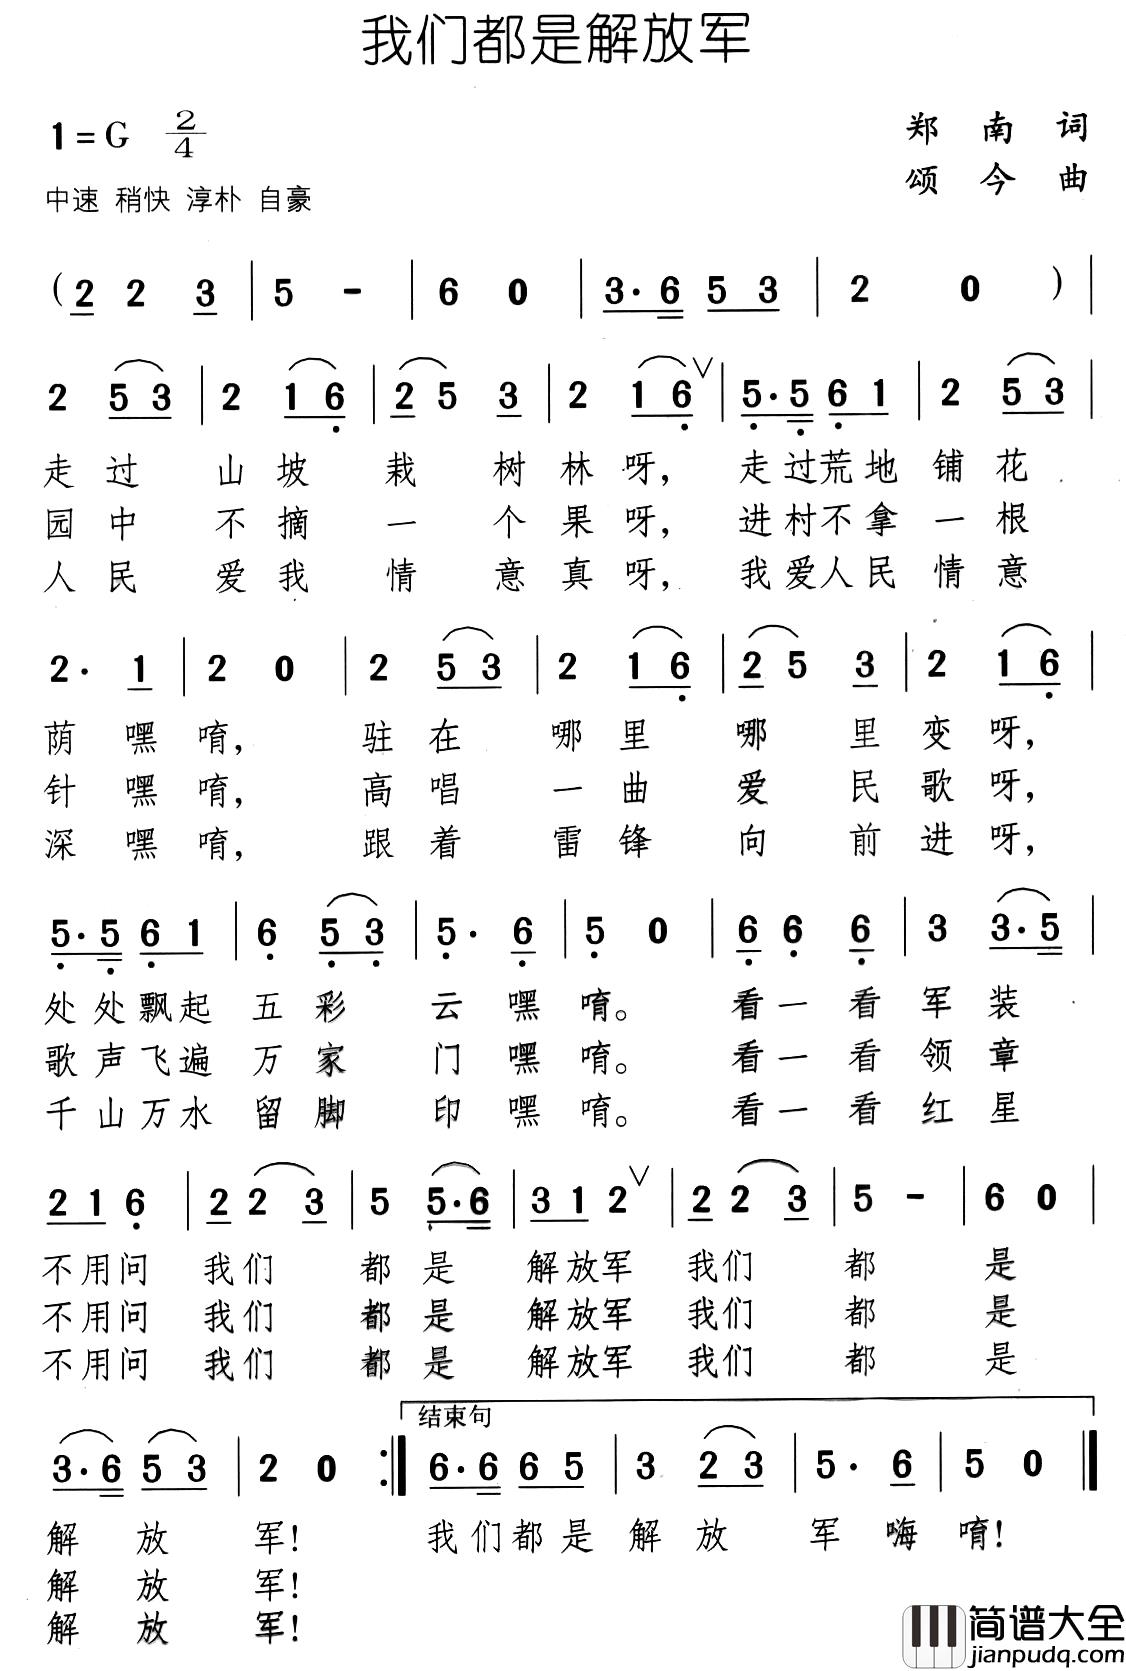 我们都是解放军
1=G 2/4
郑南词
中速 稍快 淳朴 自豪
颂今曲
(2 2 3 | 5 - | 6 0 | 3·6 5 3 | 2 0 ) |
2 5 3 | 2 1 6 | 2 5 3 | 2 1 6 ∨ | 5·5 6 1 | 2 5 3 |
走过 山坡 栽树林呀, 走过荒地铺花
园中 不摘 一个果呀, 进村不拿一根
人民 爱我 情意真呀, 我爱人民情意
2· 1 | 2 0 | 2 5 3 | 2 1 6 | 2 5 3 | 2 1 6 |
荫嘿唷, 驻在 哪里 哪里变呀,
针嘿唷, 高唱 一曲 爱民歌呀,
深嘿唷, 跟着 雷锋 向前进呀,
5·5 6 1 | 6 5 3 | 5· 6 | 5 0 | 6 6 6 | 3 3·5 |
处处飘起 五彩 云嘿唷。 看一看军装
歌声飞遍 万家 门嘿唷。 看一看领章
千山万水 留脚 印嘿唷。 看一看红星
2 1 6 | 2 2 3 | 5 5·6 | 3 1 2 ∨ | 2 2 3 | 5 - | 6 0 |
不用问 我们 都是 解放军 我们 都 是
不用问 我们 都是 解放军 我们 都 是
不用问 我们 都是 解放军 我们 都 是
结束句
3·6 5 3 | 2 0 :‖ 6·6 6 5 | 3 2 3 | 5· 6 | 5 0 ‖
解放军! 我们都是解放军嗨唷!
解放军!
解放军!
简谱大全
jianpudq.com